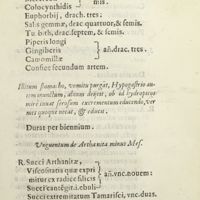 Colocynthidis
Euphorbij, drach. tres.
Salis gemmæ, drac. quattuor, & semis.
Turbith, drac. septem, & semis.
Piperis longi
Gingiberis } añ. drac. tres.
Camomillæ
Confice secundum artem.
Illitum stomacho, vomitu purgat, Hypogastrio autem
, aluum deijcit, ab ad hydropicos
mirè iuuat serosum excrementum educendo, ver
mes quoque necat, & educit.
Durat per biennium.
Vnguentum de Arthanita minus Mes.
R. Succi Arthanitæ,
Viscositatis quæ expri
mitur ex radice ficicis } añ. vnc. nouem:
Succi ebuli
Succi extremitatum Tamarisci, vnc. duas.